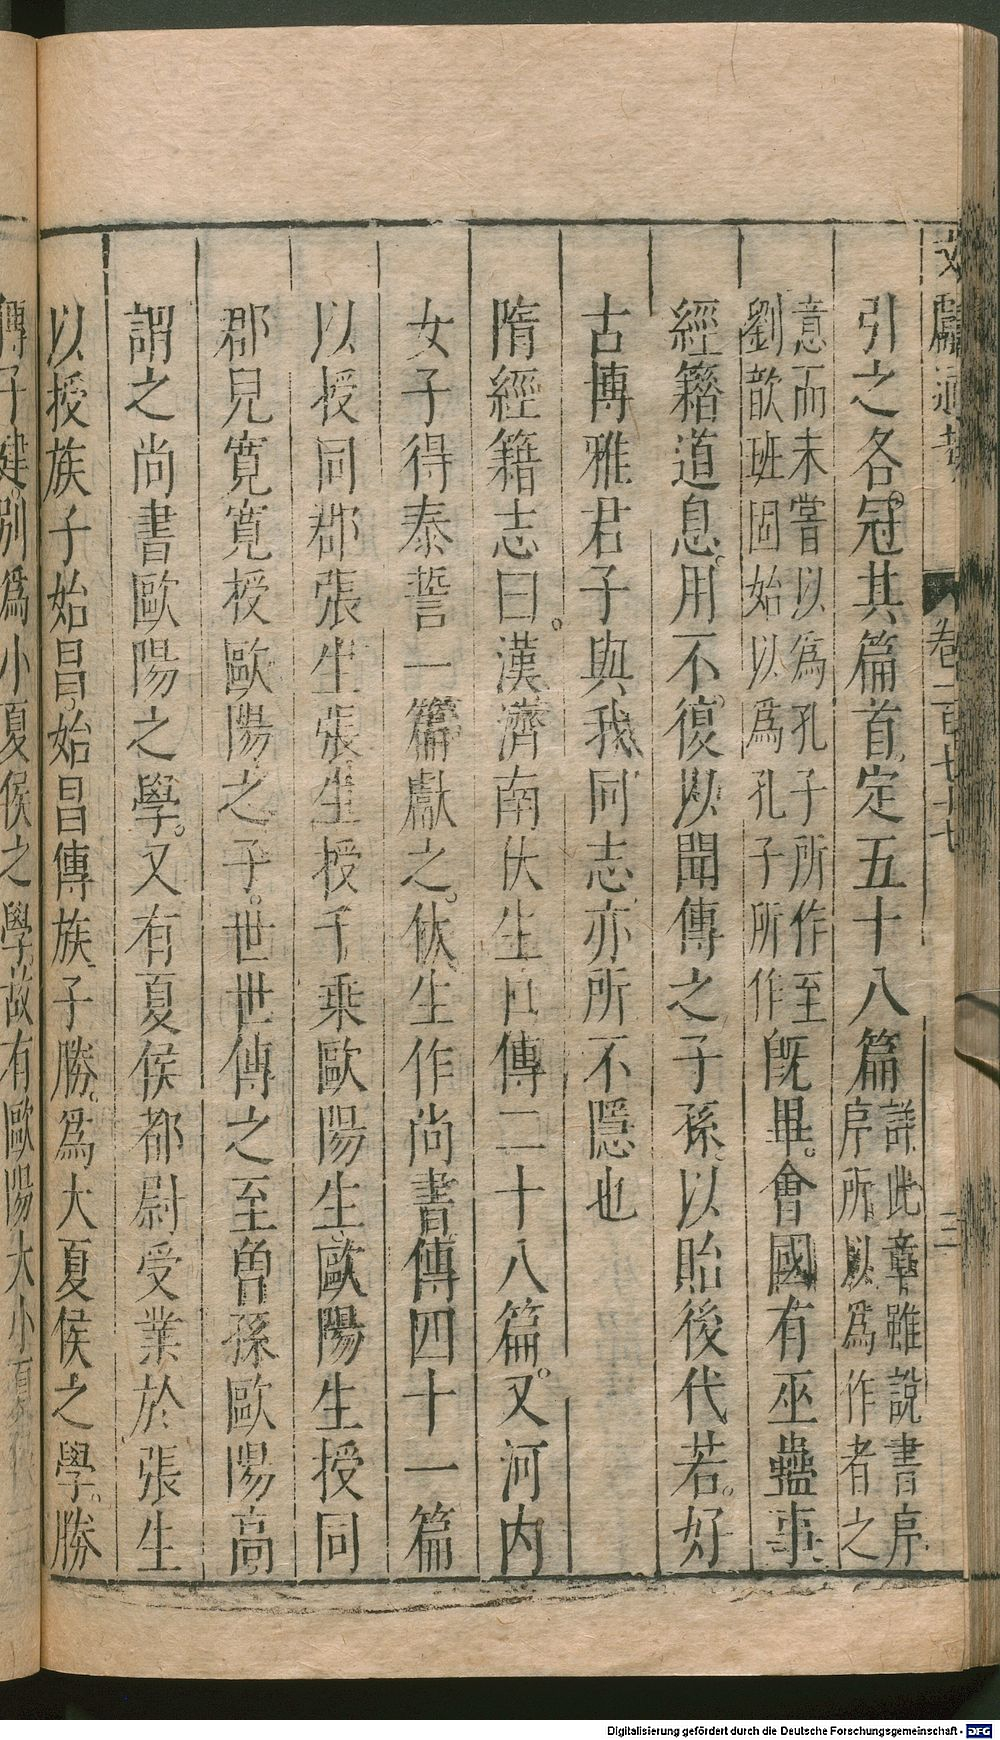 文獻通考 卷一百七十七 三
引之各冠其篇首定五十八篇詳此章雖說書序序所以爲作者之
意而未嘗以爲孔子所作至劉歆班固始以爲孔子所作旣畢。會國有巫蠱事
經籍道息。用不復以聞傳之子孫以貽後代若。好
古博雅君子與我同志亦所不隱也
隋經籍志曰。漢濟南伏生口傳二十八篇。又河內
女子得泰誓一篇獻之。伏生作尚書傳四十一篇
以授同郡張生張生授千乘歐陽生歐陽生授同
郡兒寬寬授歐陽之子。世世傳之至曾孫歐陽高
謂之尚書歐陽之學。又有夏侯都尉受業於張生
以授族子始昌始昌傳族子勝。爲大夏侯之學。勝
傳子建別爲小夏侯之學故有歐陽大小夏
Digitalisierung gefördert durch die Deutsche Forschungsgemeinschaft - DFG